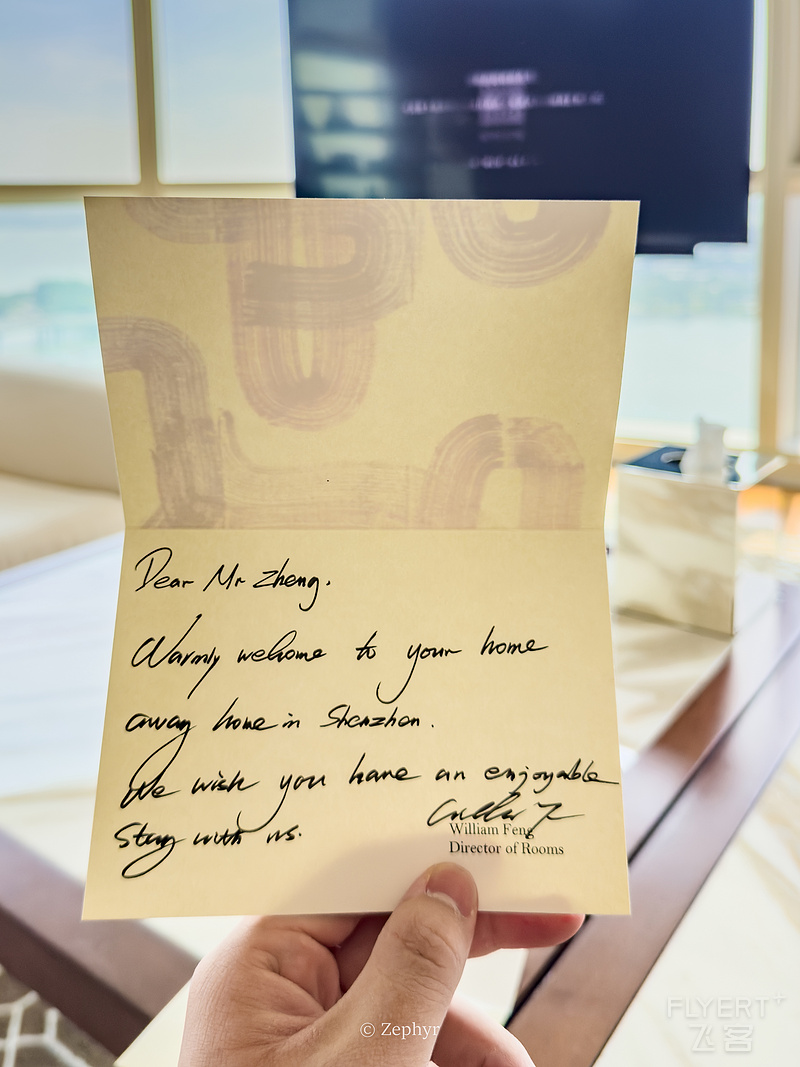 Dear Mr Zheng.
Warmly welcome to your home
away home in Shenzhen.
We wish you have an enjoyable
Stay with us.
William Feng
Director of Rooms
© Zephyr
FLYERT+
飞客